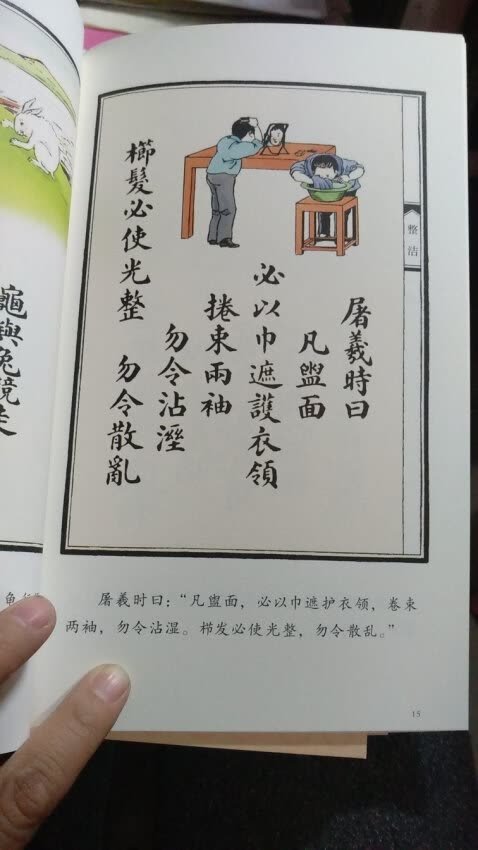 整洁
屠羲時曰
凡盥面
必以巾遮護衣領
捲束兩袖
勿令沾溼
櫛髮必使光整 勿令散亂
屠羲时曰：“凡盥面，必以巾遮护衣领，卷束
两袖，勿令沾湿。栉发必使光整，勿令散乱。”
15
龜與兔競走
龟